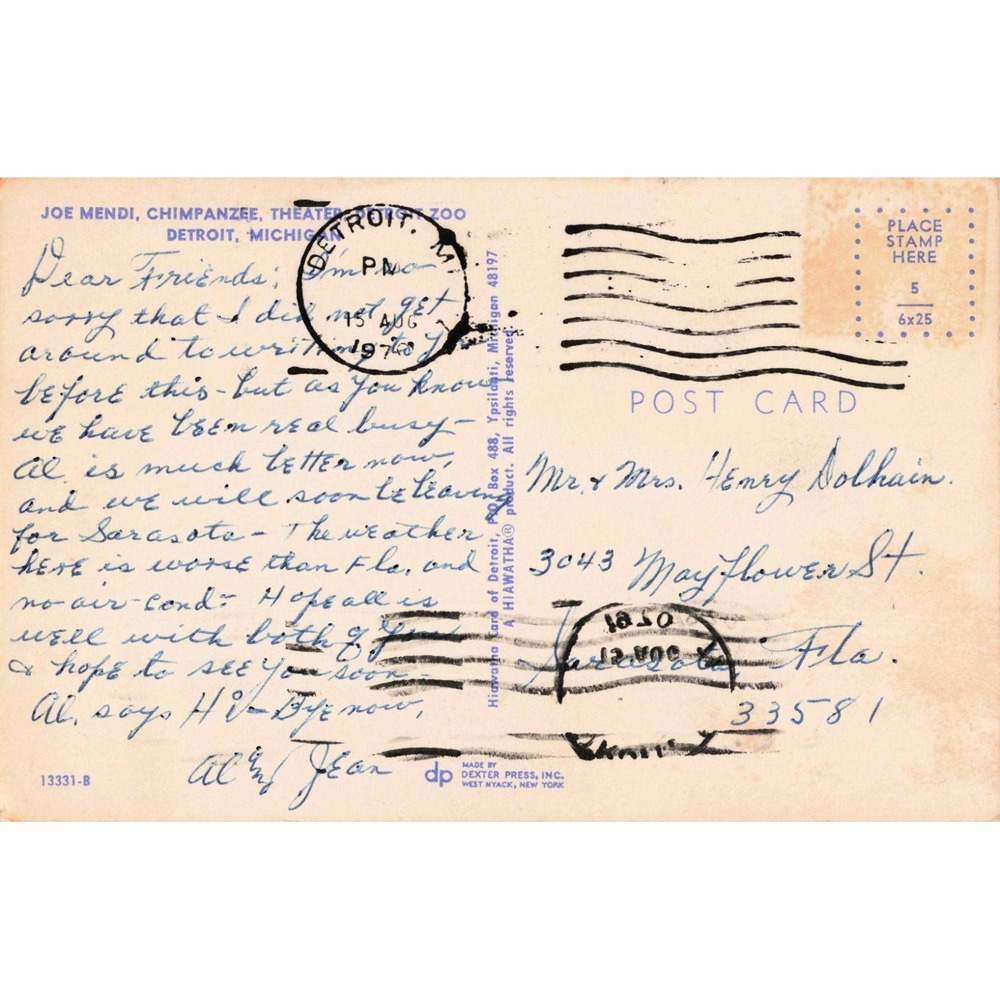 JOE MENDI, CHIMPANZEE, THEATER, DETROIT ZOO
DETROIT, MICHIGAN
Dear Friends; I'm so
sorry that I did not get
around to writing to you
before this - but as you know
we have been real busy -
Al is much better now,
and we will soon be leaving
for Sarasota - The weather
here is worse than Fla. and
no air-cond - Hope all is
well with both of you
& hope to see you soon -
Al, says Hi - Bye now,
Al and Jean
13331-B
DETROIT, M
PM
15 AUG
197
Hiawatha Card of Detroit, P.O. Box 488, Ypsilanti, Michigan 48197
A HIAWATHA® product. All rights reserved.
dp
MADE BY
DEXTER PRESS, INC.
WEST NYACK, NEW YORK
PLACE
STAMP
HERE
5
6x25
POST CARD
Mr. & Mrs. Henry Dolhain.
3043 Mayflower St.
Sarasota Fla.
33581